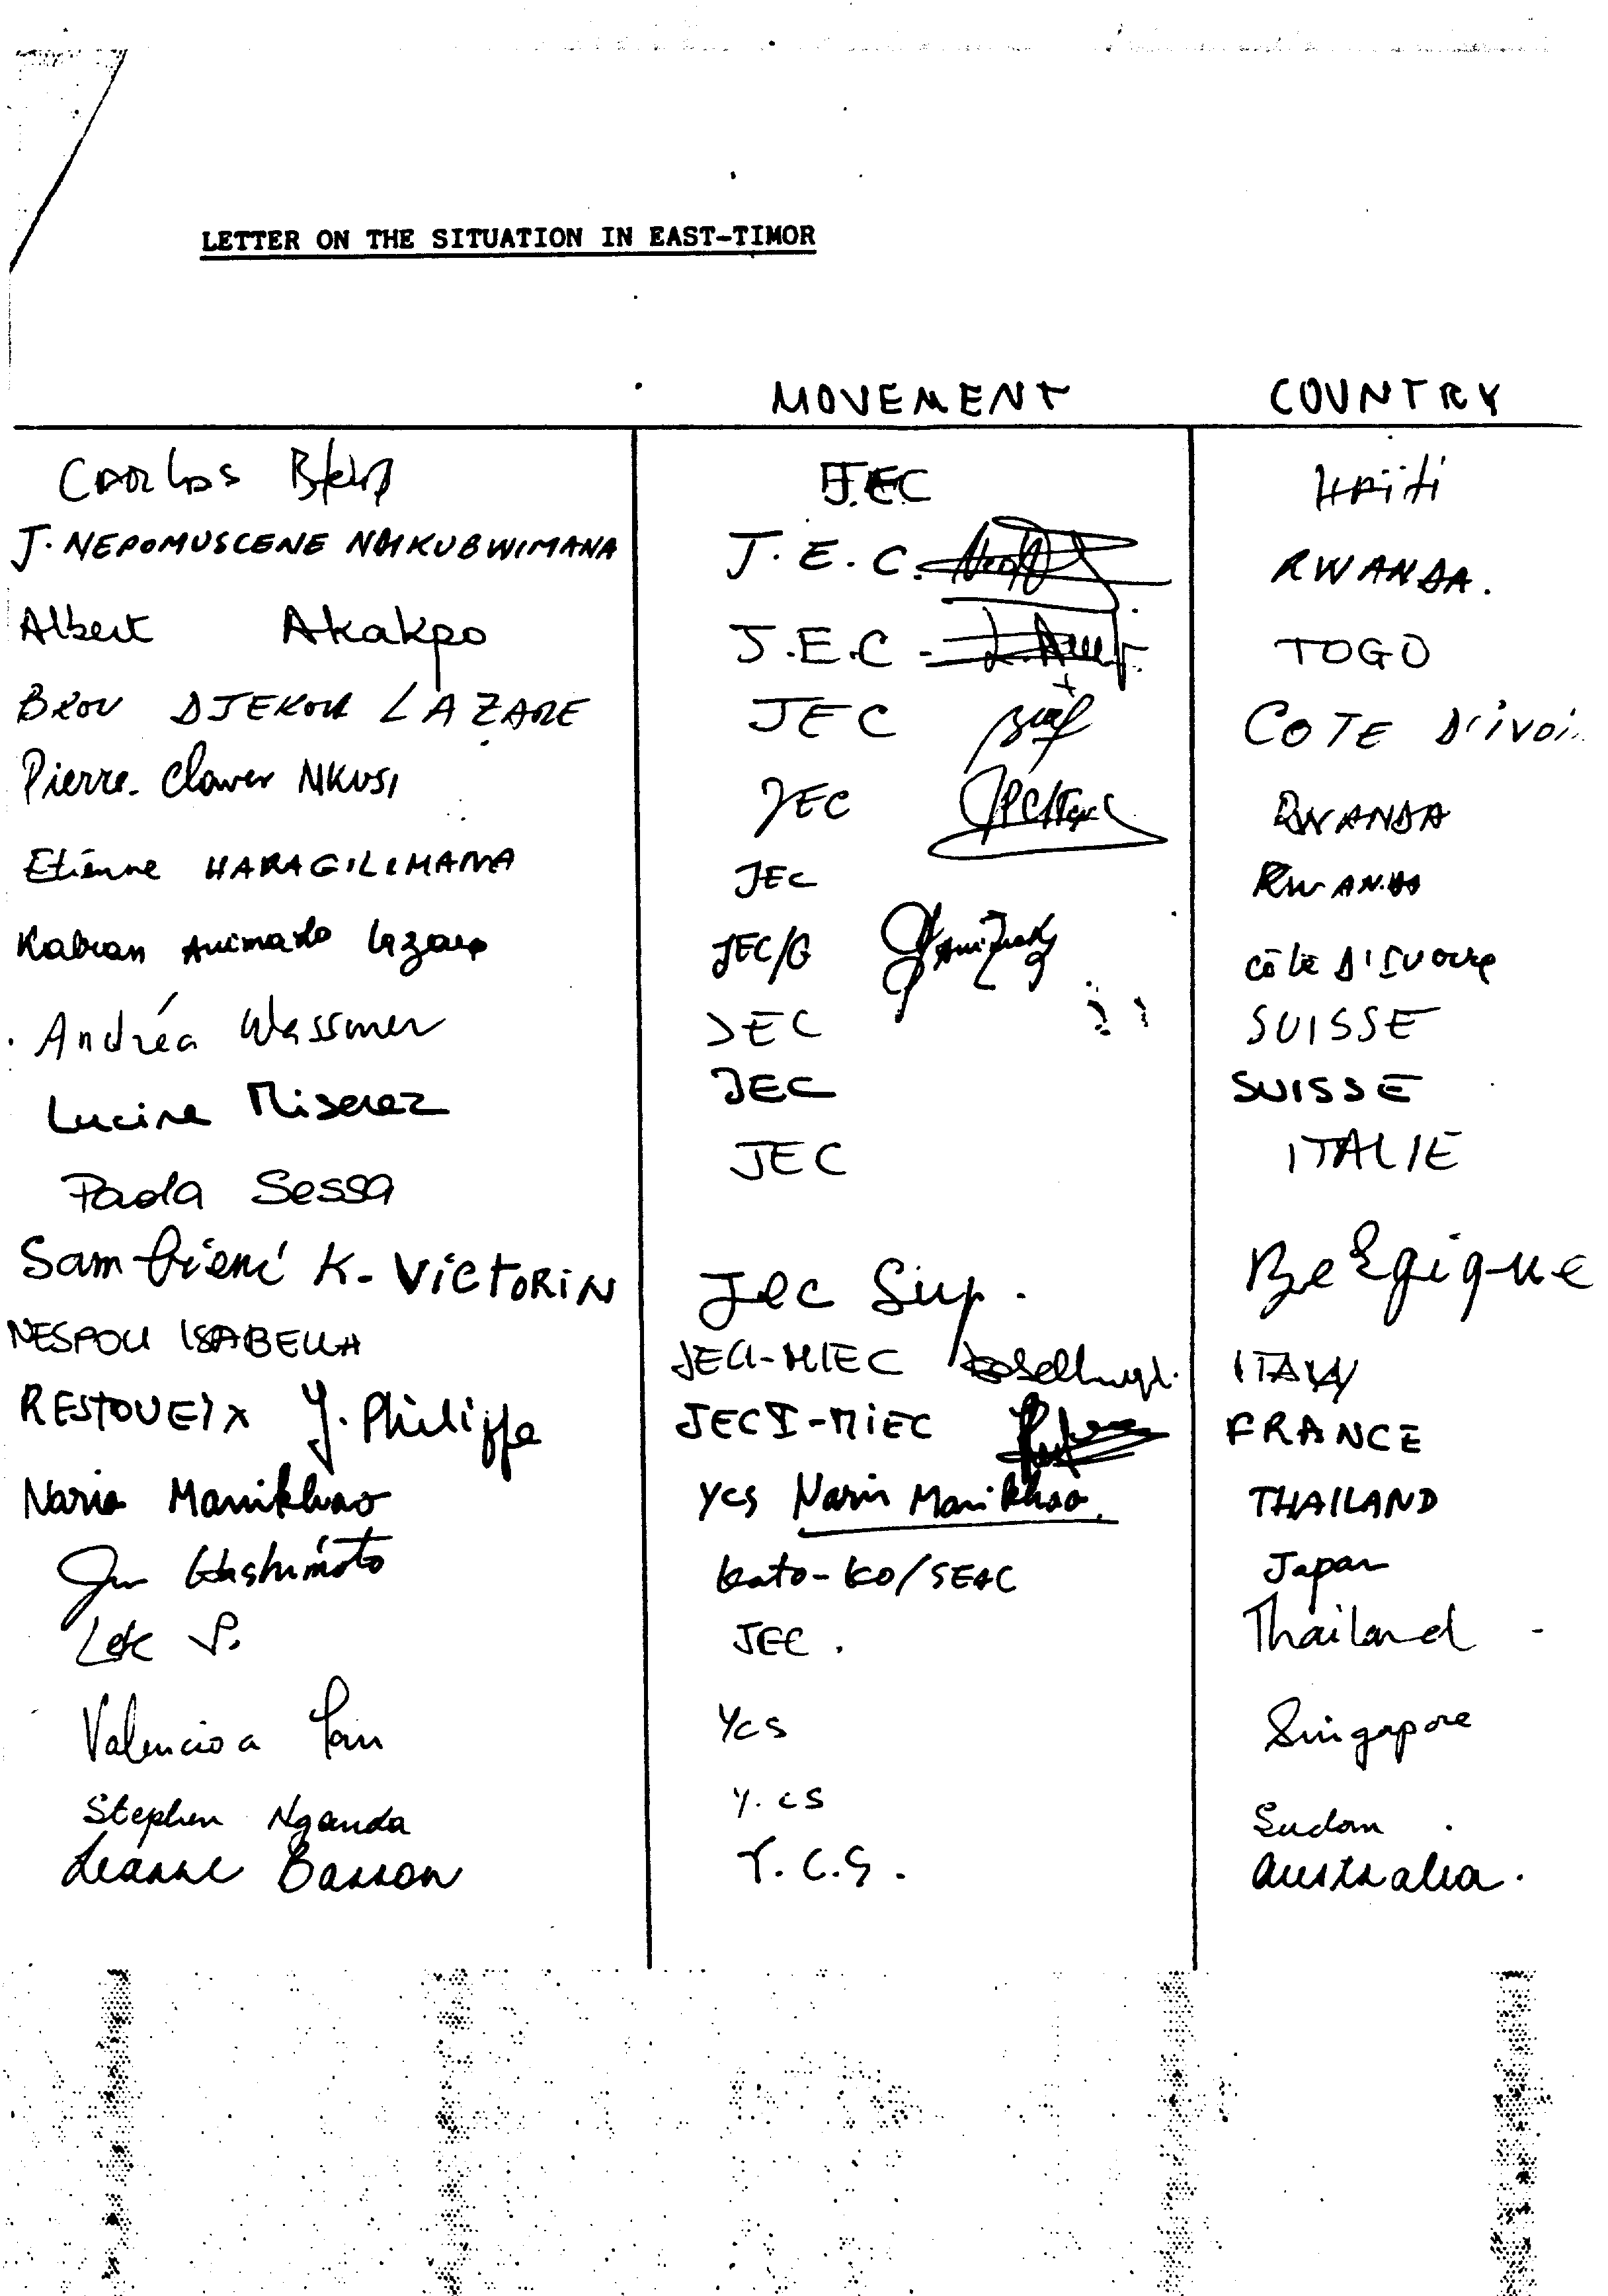 LETTER ON THE SITUATION IN EAST-TIMOR
MOVEMENT COUNTRY
Carlos J.E.C Haïti
J. NEPOMUSCENE NDIKUBWIMANA J.E.C. RWANDA.
Albert Akakpo J.E.C - TOGO
BROU DJEKOU LAZARE JEC COTE D'IVOI
Pierre-Claver NKUSI JEC RWANDA
Etienne HARAGILIMANA JEC RWANDA
Animado JEC/G côte D'Ivoire
Andréa Wassmer JEC SUISSE
Lucine Miserez JEC SUISSE
Paola Sessa JEC ITALIE
Sambiéni K. VICTORIN Jec Sup. Belgique
NESPOLI ISABELLA JECI-MIEC ITALY
RESTOUEIX J. Philippe JECI-MIEC FRANCE
Narin Manikhao YCS Narin Manikhao. THAILAND
Jun Hashimoto Kato-ko/SEAC Japan
Lek P. JEC. Thailand -
Tan YCS Singapore
Stephen Nganda Y.CS Sudan.
Leanne Barron Y.C.S. Australia.